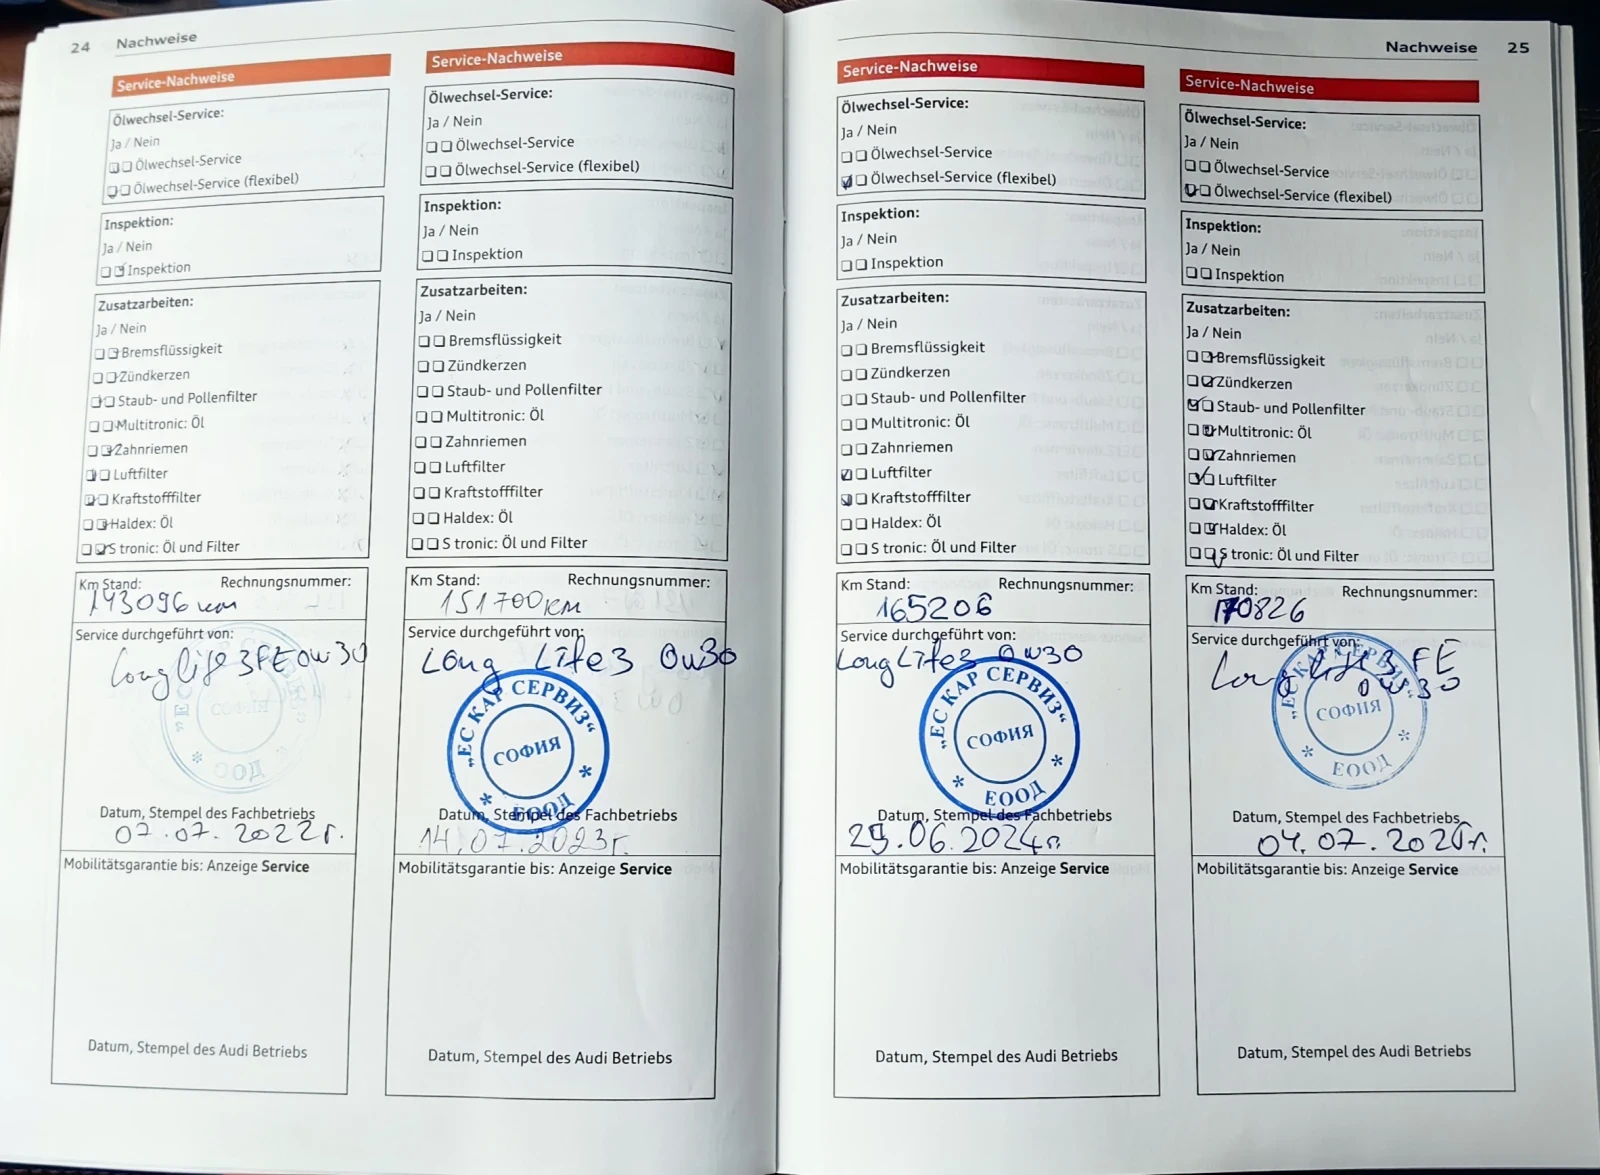 24 Nachweise
Service-Nachweise
Ölwechsel-Service:
Ja / Nein
Ölwechsel-Service
Ölwechsel-Service (flexibel)
Inspektion:
Ja / Nein
Inspektion
Zusatzarbeiten:
Ja / Nein
Bremsflüssigkeit
Zündkerzen
Staub- und Pollenfilter
Multitronic: Öl
Zahnriemen
Luftfilter
Kraftstofffilter
Haldex: Öl
S tronic: Öl und Filter
Km Stand: Rechnungsnummer:
143096 км
Service durchgeführt von:
Long life 3FE 0W30
СОФИЯ
Datum, Stempel des Fachbetriebs
07.07.2022г.
Mobilitätsgarantie bis: Anzeige Service
Datum, Stempel des Audi Betriebs
Service-Nachweise
Ölwechsel-Service:
Ja / Nein
Ölwechsel-Service
Ölwechsel-Service (flexibel)
Inspektion:
Ja / Nein
Inspektion
Zusatzarbeiten:
Ja / Nein
Bremsflüssigkeit
Zündkerzen
Staub- und Pollenfilter
Multitronic: Öl
Zahnriemen
Luftfilter
Kraftstofffilter
Haldex: Öl
S tronic: Öl und Filter
Km Stand: Rechnungsnummer:
151700 км
Service durchgeführt von:
Long Life3 0w30
„ЕС КАР СЕРВИЗ“
СОФИЯ
* ЕООД *
Datum, Stempel des Fachbetriebs
14.07.2023г.
Mobilitätsgarantie bis: Anzeige Service
Datum, Stempel des Audi Betriebs
Nachweise 25
Service-Nachweise
Ölwechsel-Service:
Ja / Nein
Ölwechsel-Service
Ölwechsel-Service (flexibel)
Inspektion:
Ja / Nein
Inspektion
Zusatzarbeiten:
Ja / Nein
Bremsflüssigkeit
Zündkerzen
Staub- und Pollenfilter
Multitronic: Öl
Zahnriemen
Luftfilter
Kraftstofffilter
Haldex: Öl
S tronic: Öl und Filter
Km Stand: Rechnungsnummer:
165206
Service durchgeführt von:
Long Life3 0w30
„ЕС КАР СЕРВИЗ“
СОФИЯ
* ЕООД *
Datum, Stempel des Fachbetriebs
29.06.2024г.
Mobilitätsgarantie bis: Anzeige Service
Datum, Stempel des Audi Betriebs
Service-Nachweise
Ölwechsel-Service:
Ja / Nein
Ölwechsel-Service
Ölwechsel-Service (flexibel)
Inspektion:
Ja / Nein
Inspektion
Zusatzarbeiten:
Ja / Nein
Bremsflüssigkeit
Zündkerzen
Staub- und Pollenfilter
Multitronic: Öl
Zahnriemen
Luftfilter
Kraftstofffilter
Haldex: Öl
S tronic: Öl und Filter
Km Stand: Rechnungsnummer:
170826
Service durchgeführt von:
Long life 3 FE
0w30
„ЕС КАР СЕРВИЗ“
СОФИЯ
* ЕООД *
Datum, Stempel des Fachbetriebs
04.07.2025г.
Mobilitätsgarantie bis: Anzeige Service
Datum, Stempel des Audi Betriebs